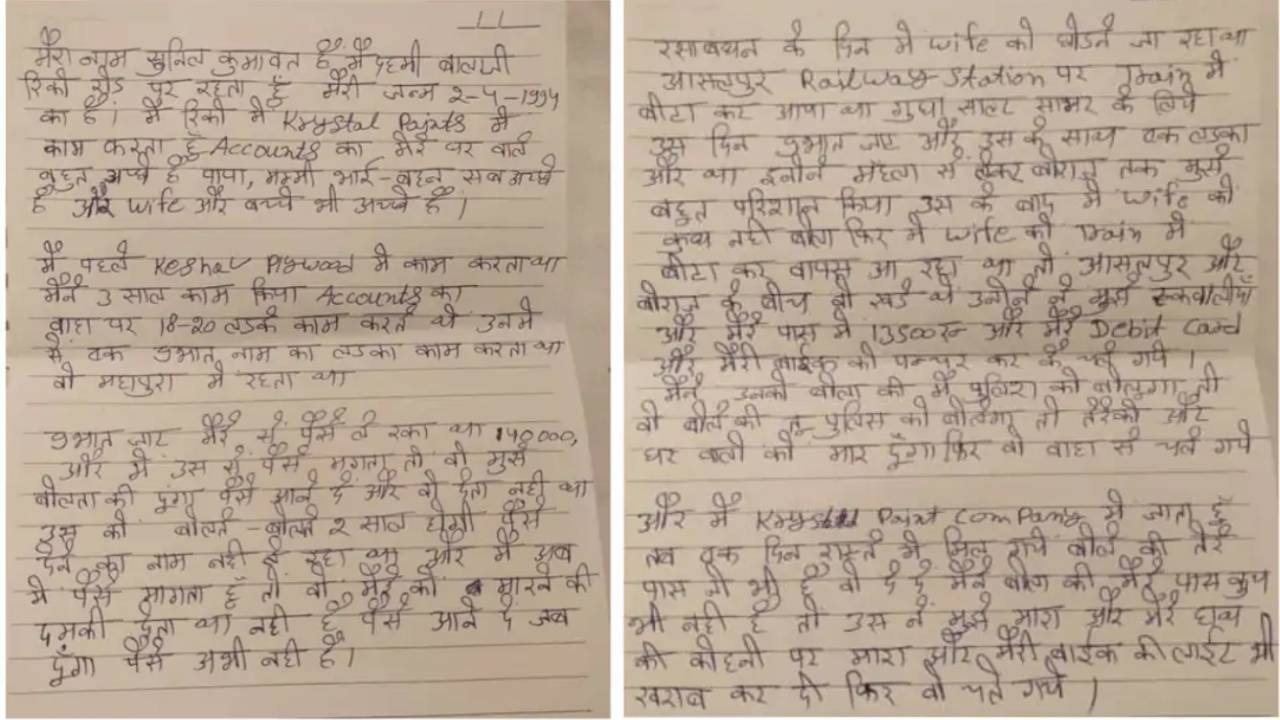 11
मेरा नाम सुनिल कुमावत है, मैं दहमी बालाजी
रिको रोड़ पर रहता हूँ मेरी जन्म 2-4-1994
का है। मैं रिको मे Krystal Paints मे
काम करता हूँ Accounts का मेरे घर वाले
बहुत अच्छे है पापा, मम्मी भाई-बहन सब अच्छे
है और wife और बच्चे भी अच्छे है।
मैं पहले Keshav Plywood मे काम करता था
मैने 3 साल काम किया Accounts का
वाहा पर 18-20 लडके काम करते थे उनमे
से एक प्रभात नाम का लडका काम करता था
वो महापुरा मे रहता था
प्रभात जाट मेरे से पैसे ले रका था 140000,
और मे उस से पैसे मगता तो वो मुझे
बोलता की दूंगा पैसे आने दे और वो देता नही था
उस को बोलते-बोलते 2 साल होगी पैसे
देने का नाम नही ले रहा था और मे अब
मे पैसे मागता हूँ तो वो मेरे को मारने की
दमकी देता था नही है पैसे आने दे जब
दूँगा पैसे अभी नही है।
रक्षाबंधन के दिन मे wife को छोडने जा रहा था
आसलपुर Railway Station पर Train मे
बीटा कर आया था गुढा साल्ट सामर के लिये
उस दिन प्रभात जाट और उस के साथ एक लडका
और था इनोने महला से लेकर बोराज तक मुझे
बहुत परिशान किया उस के बाद मे wife को
कुछ नही बोला फिर मे wife को Train मे
बीटा कर वापस आ रहा था तो आसलपुर और
बोराज के बीच वो खडे थे उनोने ने मुझे रुकवालीया
और मेरे पास मे 13500रु और मेरे Debit Card
और मेरी बाईक को पन्चर कर के चले गये।
मैने उनको बोला की मै पुलिस को बोलुगा तो
वो बोले की तू पुलिस को बोलेगा तो तेरेको और
घर वालो को मार दूँगा फिर वो वाहा से चले गये
और मैं Krystal Paint Company मे जाता हूँ
तब एक दिन रास्ते मे मिल गये बोले की तेरे
पास जो भी है वो दे दे मैने बोला की मेरे पास कुछ
भी नही है तो उस ने मुझे मारा और मेरे हाथ
की कोहनी पर मारा और मेरी बाईक की लाईट भी
खराब कर दी फिर वो चले गये।